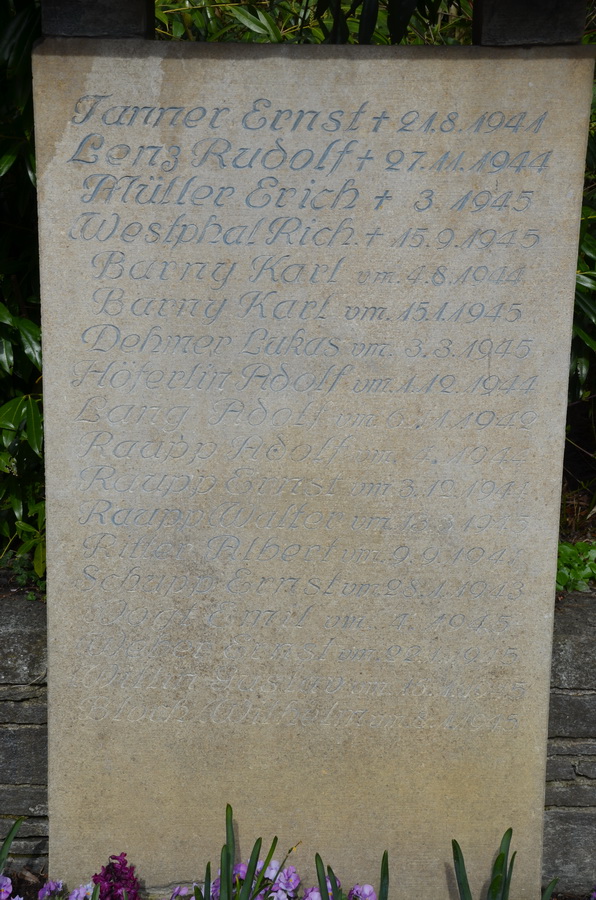 Tanner Ernst + 21.8.1941
Lenz Rudolf + 27.11.1944
Müller Erich + 3. 1945
Westphal Rich. + 15.9.1945
Barny Karl vm. 4.8.1944
Barny Karl vm. 15.1.1945
Dehmer Lukas vm. 3.3.1945
Höferlin Adolf vm. 1.12.1944
Lang Adolf vm
Raupp Adolf vm.
Raupp Ernst vm. 3.12.
Raupp Walter vm
Ritter Albert vm. 9.9.
Schupp Ernst vm. 28.1.1943
Vogt Emil vm. 4. 1945
Ernst vm. 22.

Bloch Wilhelm